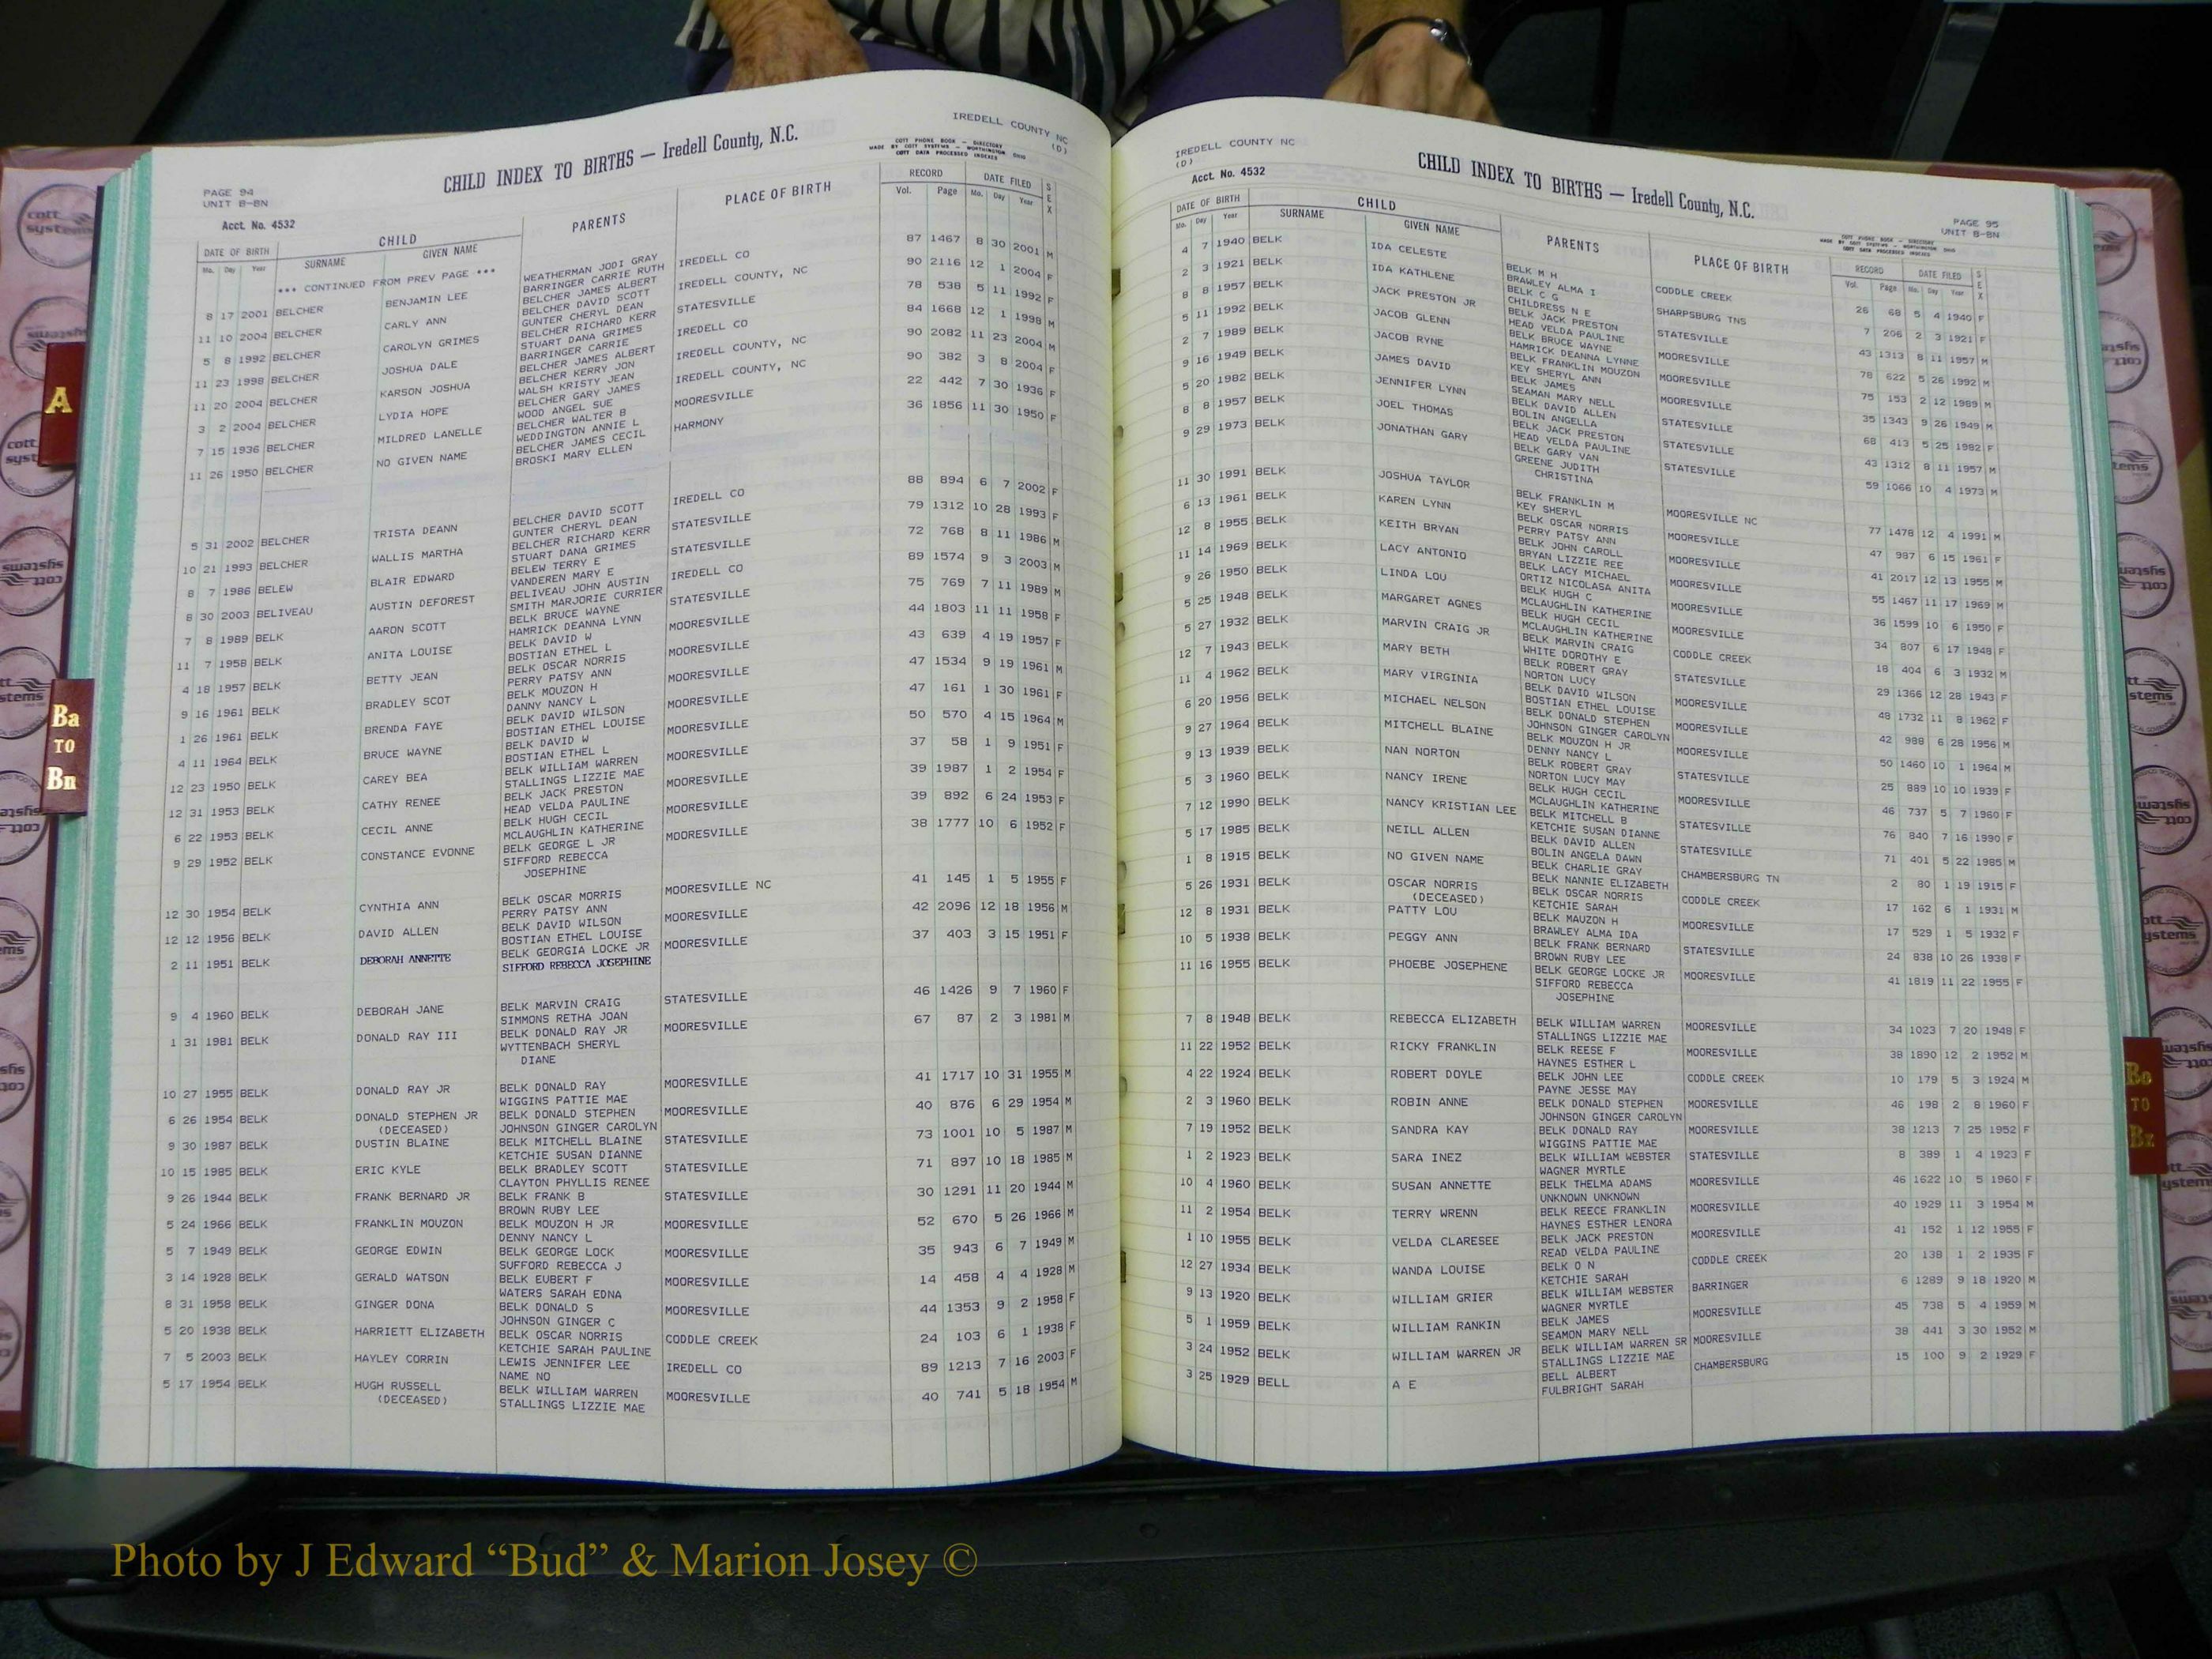 IREDELL COUNTY NC
(D)
CHILD INDEX TO BIRTHS — Iredell County, N.C.
COTT PHONE BOOK — DIRECTORY
MADE BY COTT SYSTEMS — WORTHINGTON OHIO
COTT DATA PROCESSED INDEXES
PAGE 94
UNIT B-BN
Acct. No. 4532
DATE OF BIRTH CHILD PARENTS PLACE OF BIRTH RECORD DATE FILED SEX
Mo. Day Year SURNAME GIVEN NAME Vol. Page Mo. Day Year
*** CONTINUED FROM PREV PAGE ***
8 17 2001 BELCHER BENJAMIN LEE WEATHERMAN JODI GRAY IREDELL CO 87 1467 8 30 2001 M
BARRINGER CARRIE RUTH
11 10 2004 BELCHER CARLY ANN BELCHER JAMES ALBERT IREDELL COUNTY, NC 90 2116 12 1 2004 F
BELCHER DAVID SCOTT
5 8 1992 BELCHER CAROLYN GRIMES GUNTER CHERYL DEAN STATESVILLE 78 538 5 11 1992 F
BELCHER RICHARD KERR
11 23 1998 BELCHER JOSHUA DALE STUART DANA GRIMES IREDELL CO 84 1668 12 1 1998 M
BARRINGER CARRIE
11 20 2004 BELCHER KARSON JOSHUA BELCHER JAMES ALBERT IREDELL COUNTY, NC 90 2082 11 23 2004 M
BELCHER KERRY JON
3 2 2004 BELCHER LYDIA HOPE WALSH KRISTY JEAN IREDELL COUNTY, NC 90 382 3 8 2004 F
BELCHER GARY JAMES
WOOD ANGEL SUE
7 15 1936 BELCHER MILDRED LANELLE BELCHER WALTER B MOORESVILLE 22 442 7 30 1936 F
WEDDINGTON ANNIE L
11 26 1950 BELCHER NO GIVEN NAME BELCHER JAMES CECIL HARMONY 36 1856 11 30 1950 F
BROSKI MARY ELLEN
5 31 2002 BELCHER TRISTA DEANN BELCHER DAVID SCOTT IREDELL CO 88 894 6 7 2002 F
GUNTER CHERYL DEAN
10 21 1993 BELCHER WALLIS MARTHA BELCHER RICHARD KERR STATESVILLE 79 1312 10 28 1993 F
STUART DANA GRIMES
8 7 1986 BELEW BLAIR EDWARD BELEW TERRY E STATESVILLE 72 768 8 11 1986 M
VANDEREN MARY E
8 30 2003 BELIVEAU AUSTIN DEFOREST BELIVEAU JOHN AUSTIN IREDELL CO 89 1574 9 3 2003 M
SMITH MARJORIE CURRIER
7 8 1989 BELK AARON SCOTT BELK BRUCE WAYNE STATESVILLE 75 769 7 11 1989 M
HAMRICK DEANNA LYNN
11 7 1958 BELK ANITA LOUISE BELK DAVID W MOORESVILLE 44 1803 11 11 1958 F
BOSTIAN ETHEL L
4 18 1957 BELK BETTY JEAN BELK OSCAR NORRIS MOORESVILLE 43 639 4 19 1957 F
PERRY PATSY ANN
9 16 1961 BELK BRADLEY SCOT BELK MOUZON H MOORESVILLE 47 1534 9 19 1961 M
DANNY NANCY L
1 26 1961 BELK BRENDA FAYE BELK DAVID WILSON MOORESVILLE 47 161 1 30 1961 F
BOSTIAN ETHEL LOUISE
4 11 1964 BELK BRUCE WAYNE BELK DAVID W MOORESVILLE 50 570 4 15 1964 M
BOSTIAN ETHEL L
12 23 1950 BELK CAREY BEA BELK WILLIAM WARREN MOORESVILLE 37 58 1 9 1951 F
STALLINGS LIZZIE MAE
12 31 1953 BELK CATHY RENEE BELK JACK PRESTON MOORESVILLE 39 1987 1 2 1954 F
HEAD VELDA PAULINE
6 22 1953 BELK CECIL ANNE BELK HUGH CECIL MOORESVILLE 39 892 6 24 1953 F
MCLAUGHLIN KATHERINE
9 29 1952 BELK CONSTANCE EVONNE BELK GEORGE L JR MOORESVILLE 38 1777 10 6 1952 F
SIFFORD REBECCA
JOSEPHINE
12 30 1954 BELK CYNTHIA ANN BELK OSCAR MORRIS MOORESVILLE NC 41 145 1 5 1955 F
PERRY PATSY ANN
12 12 1956 BELK DAVID ALLEN BELK DAVID WILSON MOORESVILLE 42 2096 12 18 1956 M
BOSTIAN ETHEL LOUISE
2 11 1951 BELK DEBORAH ANNETTE BELK GEORGIA LOCKE JR MOORESVILLE 37 403 3 15 1951 F
SIFFORD REBECCA JOSEPHINE
9 4 1960 BELK DEBORAH JANE BELK MARVIN CRAIG STATESVILLE 46 1426 9 7 1960 F
SIMMONS RETHA JOAN
1 31 1981 BELK DONALD RAY III BELK DONALD RAY JR MOORESVILLE 67 87 2 3 1981 M
WYTTENBACH SHERYL
DIANE
10 27 1955 BELK DONALD RAY JR BELK DONALD RAY MOORESVILLE 41 1717 10 31 1955 M
WIGGINS PATTIE MAE
6 26 1954 BELK DONALD STEPHEN JR BELK DONALD STEPHEN MOORESVILLE 40 876 6 29 1954 M
(DECEASED) JOHNSON GINGER CAROLYN
9 30 1987 BELK DUSTIN BLAINE BELK MITCHELL BLAINE STATESVILLE 73 1001 10 5 1987 M
KETCHIE SUSAN DIANNE
10 15 1985 BELK ERIC KYLE BELK BRADLEY SCOTT STATESVILLE 71 897 10 18 1985 M
CLAYTON PHYLLIS RENEE
9 26 1944 BELK FRANK BERNARD JR BELK FRANK B STATESVILLE 30 1291 11 20 1944 M
BROWN RUBY LEE
5 24 1966 BELK FRANKLIN MOUZON BELK MOUZON H JR MOORESVILLE 52 670 5 26 1966 M
DENNY NANCY L
5 7 1949 BELK GEORGE EDWIN BELK GEORGE LOCK MOORESVILLE 35 943 6 7 1949 M
SUFFORD REBECCA J
3 14 1928 BELK GERALD WATSON BELK EUBERT F MOORESVILLE 14 458 4 4 1928 M
WATERS SARAH EDNA
8 31 1958 BELK GINGER DONA BELK DONALD S MOORESVILLE 44 1353 9 2 1958 F
JOHNSON GINGER C
5 20 1938 BELK HARRIETT ELIZABETH BELK OSCAR NORRIS CODDLE CREEK 24 103 6 1 1938 F
KETCHIE SARAH PAULINE
7 5 2003 BELK HAYLEY CORRIN LEWIS JENNIFER LEE IREDELL CO 89 1213 7 16 2003 F
NAME NO
5 17 1954 BELK HUGH RUSSELL BELK WILLIAM WARREN MOORESVILLE 40 741 5 18 1954 M
(DECEASED) STALLINGS LIZZIE MAE
IREDELL COUNTY NC
(D)
Acct. No. 4532
CHILD INDEX TO BIRTHS — Iredell County, N.C.
PAGE 95
UNIT B-BN
COTT PHONE BOOK — DIRECTORY
MADE BY COTT SYSTEMS — WORTHINGTON OHIO
COTT DATA PROCESSED INDEXES
DATE OF BIRTH CHILD PARENTS PLACE OF BIRTH RECORD DATE FILED SEX
Mo. Day Year SURNAME GIVEN NAME Vol. Page Mo. Day Year
4 7 1940 BELK IDA CELESTE BELK M H CODDLE CREEK 26 68 5 4 1940 F
BRAWLEY ALMA I
2 3 1921 BELK IDA KATHLENE BELK C G SHARPSBURG TNS 7 206 2 3 1921 F
CHILDRESS N E
8 8 1957 BELK JACK PRESTON JR BELK JACK PRESTON STATESVILLE 43 1313 8 11 1957 M
HEAD VELDA PAULINE
5 11 1992 BELK JACOB GLENN BELK BRUCE WAYNE MOORESVILLE 78 622 5 26 1992 M
HAMRICK DEANNA LYNNE
2 7 1989 BELK JACOB RYNE BELK FRANKLIN MOUZON MOORESVILLE 75 153 2 12 1989 M
KEY SHERYL ANN
9 16 1949 BELK JAMES DAVID BELK JAMES MOORESVILLE 35 1343 9 26 1949 M
SEAMAN MARY NELL
5 20 1982 BELK JENNIFER LYNN BELK DAVID ALLEN STATESVILLE 68 413 5 25 1982 F
BOLIN ANGELLA
8 8 1957 BELK JOEL THOMAS BELK JACK PRESTON STATESVILLE 43 1312 8 11 1957 M
HEAD VELDA PAULINE
9 29 1973 BELK JONATHAN GARY BELK GARY VAN STATESVILLE 59 1066 10 4 1973 M
GREENE JUDITH
CHRISTINA
11 30 1991 BELK JOSHUA TAYLOR BELK FRANKLIN M MOORESVILLE NC 77 1478 12 4 1991 M
KEY SHERYL
6 13 1961 BELK KAREN LYNN BELK OSCAR NORRIS MOORESVILLE 47 987 6 15 1961 F
PERRY PATSY ANN
12 8 1955 BELK KEITH BRYAN BELK JOHN CAROLL MOORESVILLE 41 2017 12 13 1955 M
BRYAN LIZZIE REE
11 14 1969 BELK LACY ANTONIO BELK LACY MICHAEL MOORESVILLE 55 1467 11 17 1969 M
ORTIZ NICOLASA ANITA
9 26 1950 BELK LINDA LOU BELK HUGH C MOORESVILLE 36 1599 10 6 1950 F
MCLAUGHLIN KATHERINE
5 25 1948 BELK MARGARET AGNES BELK HUGH CECIL MOORESVILLE 34 807 6 17 1948 F
MCLAUGHLIN KATHERINE
5 27 1932 BELK MARVIN CRAIG JR BELK MARVIN CRAIG CODDLE CREEK 18 404 6 3 1932 M
WHITE DOROTHY E
12 7 1943 BELK MARY BETH BELK ROBERT GRAY STATESVILLE 29 1366 12 28 1943 F
NORTON LUCY
11 4 1962 BELK MARY VIRGINIA BELK DAVID WILSON MOORESVILLE 48 1732 11 8 1962 F
BOSTIAN ETHEL LOUISE
6 20 1956 BELK MICHAEL NELSON BELK DONALD STEPHEN MOORESVILLE 42 988 6 28 1956 M
JOHNSON GINGER CAROLYN
9 27 1964 BELK MITCHELL BLAINE BELK MOUZON H JR MOORESVILLE 50 1460 10 1 1964 M
DENNY NANCY L
9 13 1939 BELK NAN NORTON BELK ROBERT GRAY STATESVILLE 25 889 10 10 1939 F
NORTON LUCY MAY
5 3 1960 BELK NANCY IRENE BELK HUGH CECIL MOORESVILLE 46 737 5 7 1960 F
MCLAUGHLIN KATHERINE
7 12 1990 BELK NANCY KRISTIAN LEE BELK MITCHELL B STATESVILLE 76 840 7 16 1990 F
KETCHIE SUSAN DIANNE
5 17 1985 BELK NEILL ALLEN BELK DAVID ALLEN STATESVILLE 71 401 5 22 1985 M
BOLIN ANGELA DAWN
1 8 1915 BELK NO GIVEN NAME BELK CHARLIE GRAY CHAMBERSBURG TN 2 80 1 19 1915 F
BELK NANNIE ELIZABETH
5 26 1931 BELK OSCAR NORRIS BELK OSCAR NORRIS CODDLE CREEK 17 162 6 1 1931 M
(DECEASED) KETCHIE SARAH
12 8 1931 BELK PATTY LOU BELK MAUZON H MOORESVILLE 17 529 1 5 1932 F
BRAWLEY ALMA IDA
10 5 1938 BELK PEGGY ANN BELK FRANK BERNARD STATESVILLE 24 838 10 26 1938 F
BROWN RUBY LEE
11 16 1955 BELK PHOEBE JOSEPHENE BELK GEORGE LOCKE JR MOORESVILLE 41 1819 11 22 1955 F
SIFFORD REBECCA
JOSEPHINE
7 8 1948 BELK REBECCA ELIZABETH BELK WILLIAM WARREN MOORESVILLE 34 1023 7 20 1948 F
STALLINGS LIZZIE MAE
11 22 1952 BELK RICKY FRANKLIN BELK REESE F MOORESVILLE 38 1890 12 2 1952 M
HAYNES ESTHER L
4 22 1924 BELK ROBERT DOYLE BELK JOHN LEE CODDLE CREEK 10 179 5 3 1924 M
PAYNE JESSE MAY
2 3 1960 BELK ROBIN ANNE BELK DONALD STEPHEN MOORESVILLE 46 198 2 8 1960 F
JOHNSON GINGER CAROLYN
7 19 1952 BELK SANDRA KAY BELK DONALD RAY MOORESVILLE 38 1213 7 25 1952 F
WIGGINS PATTIE MAE
1 2 1923 BELK SARA INEZ BELK WILLIAM WEBSTER STATESVILLE 8 389 1 4 1923 F
WAGNER MYRTLE
10 4 1960 BELK SUSAN ANNETTE BELK THELMA ADAMS MOORESVILLE 46 1622 10 5 1960 F
UNKNOWN UNKNOWN
11 2 1954 BELK TERRY WRENN BELK REECE FRANKLIN MOORESVILLE 40 1929 11 3 1954 M
HAYNES ESTHER LENORA
1 10 1955 BELK VELDA CLARESEE BELK JACK PRESTON MOORESVILLE 41 152 1 12 1955 F
READ VELDA PAULINE
12 27 1934 BELK WANDA LOUISE BELK O N CODDLE CREEK 20 138 1 2 1935 F
KETCHIE SARAH
9 13 1920 BELK WILLIAM GRIER BELK WILLIAM WEBSTER BARRINGER 6 1289 9 18 1920 M
WAGNER MYRTLE
5 1 1959 BELK WILLIAM RANKIN BELK JAMES MOORESVILLE 45 738 5 4 1959 M
SEAMON MARY NELL
3 24 1952 BELK WILLIAM WARREN JR BELK WILLIAM WARREN SR MOORESVILLE 38 441 3 30 1952 M
STALLINGS LIZZIE MAE
3 25 1929 BELL A E BELL ALBERT CHAMBERSBURG 15 100 9 2 1929 F
FULBRIGHT SARAH
A
Ba
TO
Bn
Bo
TO
Bz
cott
systems
Photo by J Edward “Bud” & Marion Josey ©